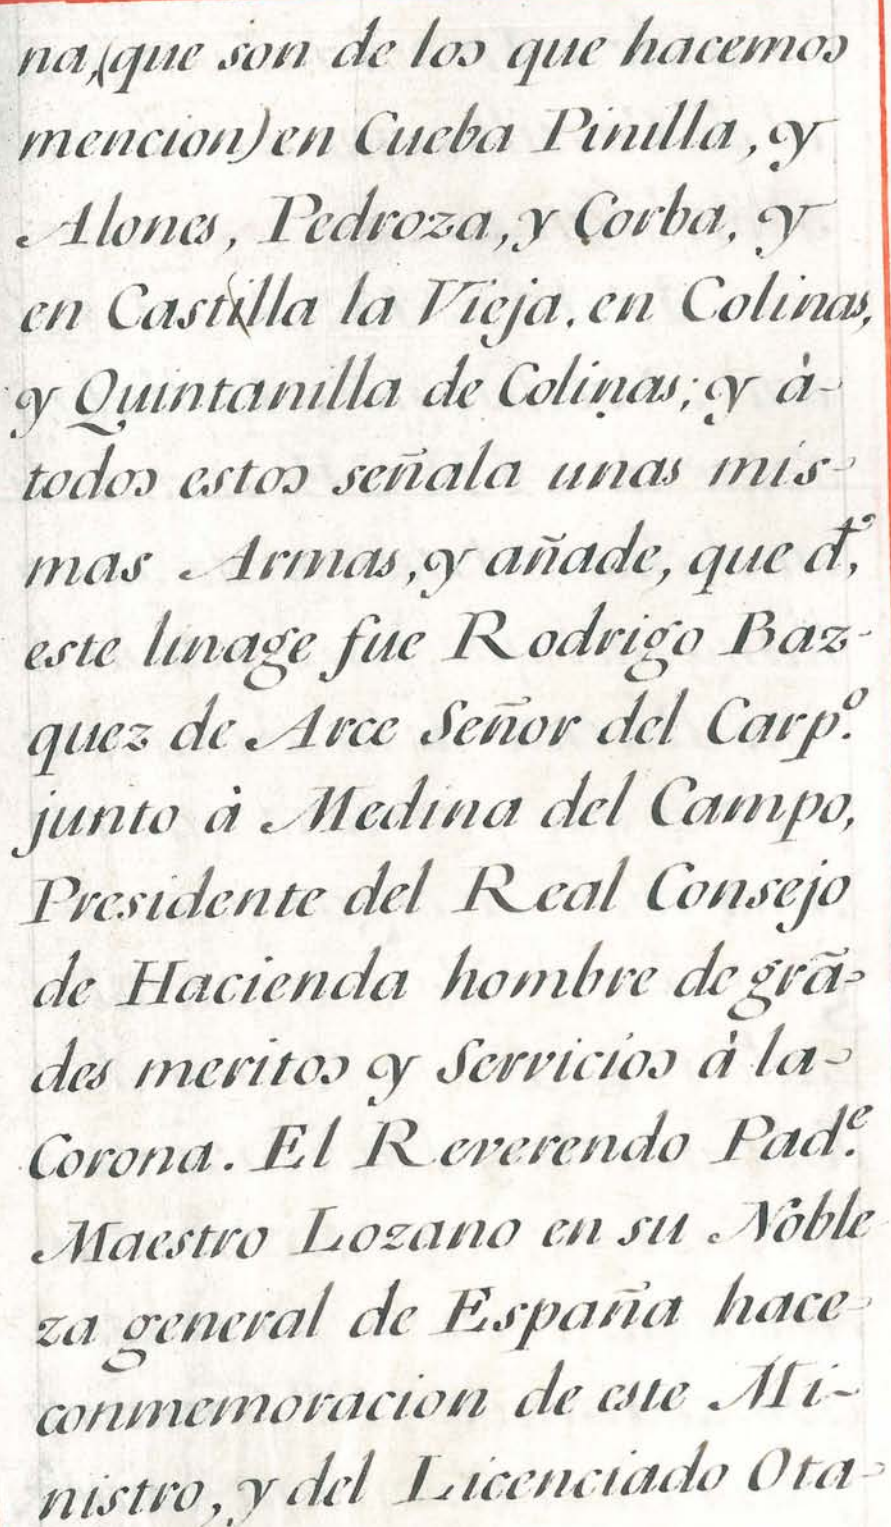 na, (que son de los que hacemos
mencion) en Cueba Pinilla, y
Alones, Pedroza, y Corba, y
en Castilla la Vieja, en Colinas,
y Quintanilla de Colinas; y à-
todos estos señala unas mis-
mas Armas, y añade, que d.^e
este linage fue Rodrigo Baz-
quez de Arce Señor del Carp.º
junto à Medina del Campo,
Presidente del Real Consejo
de Hacienda hombre de grã-
des meritos y Servicios à la-
Corona. El Reverendo Pad.^e
Maestro Lozano en su Noble
za general de España hace-
conmemoracion de este Mi-
nistro, y del Licenciado Ota-